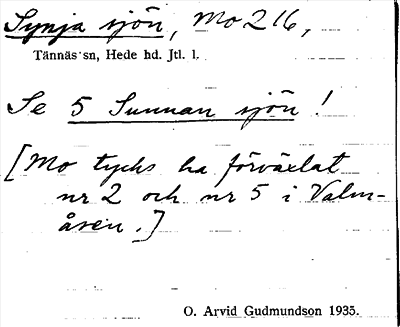 Synja sjön, Mo 216,
Tännäs sn, Hede hd. Jtl. l.
Se 5 Sunnan sjön !
[Mo tycks ha förväxlat
nr 2 och nr 5 i Valm-
åsen.]
O. Arvid Gudmundson 1935.